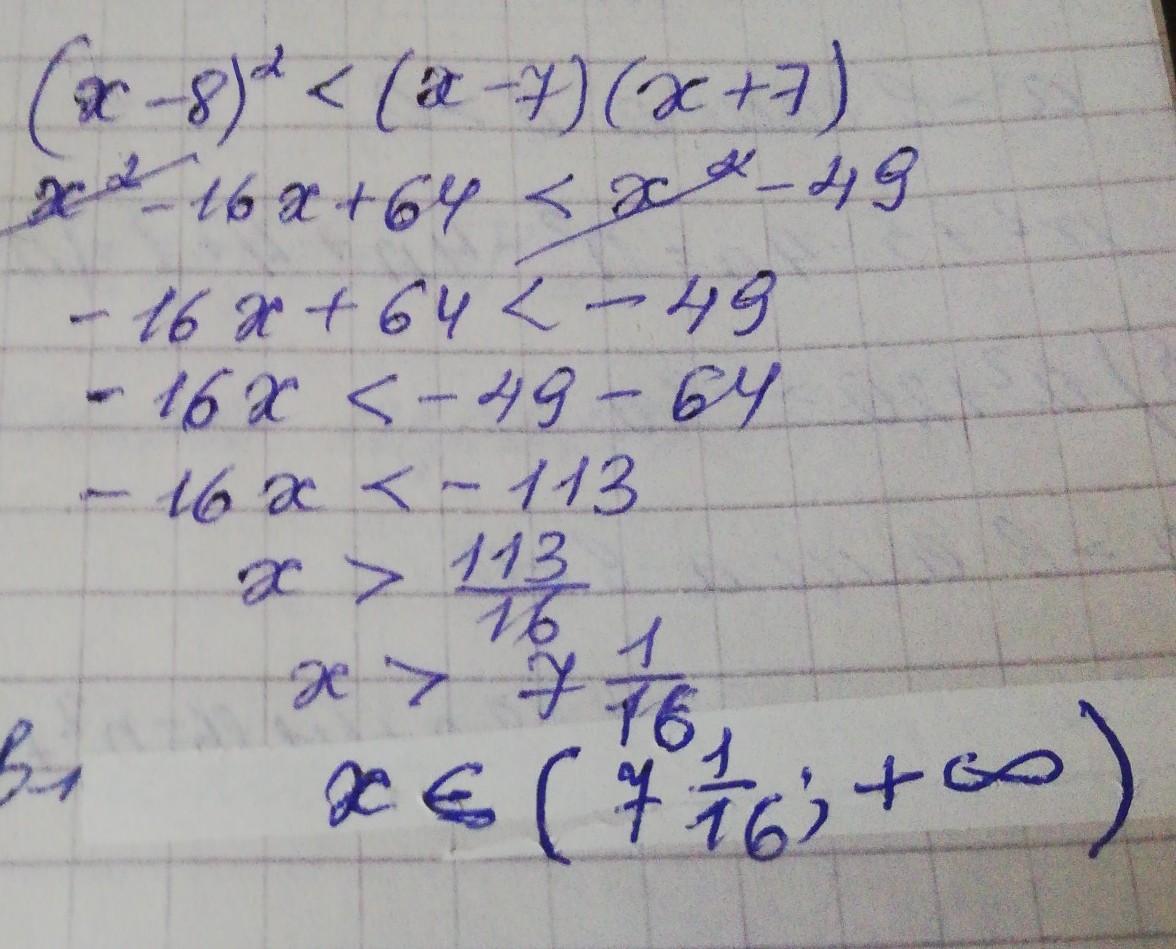 (x-8)² < (x-7)(x+7)
x² - 16x + 64 < x² - 49
- 16x + 64 < - 49
- 16x < - 49 - 64
- 16x < - 113
x > 113/16
x > 7 1/16
x ∈ (7 1/16; + ∞)